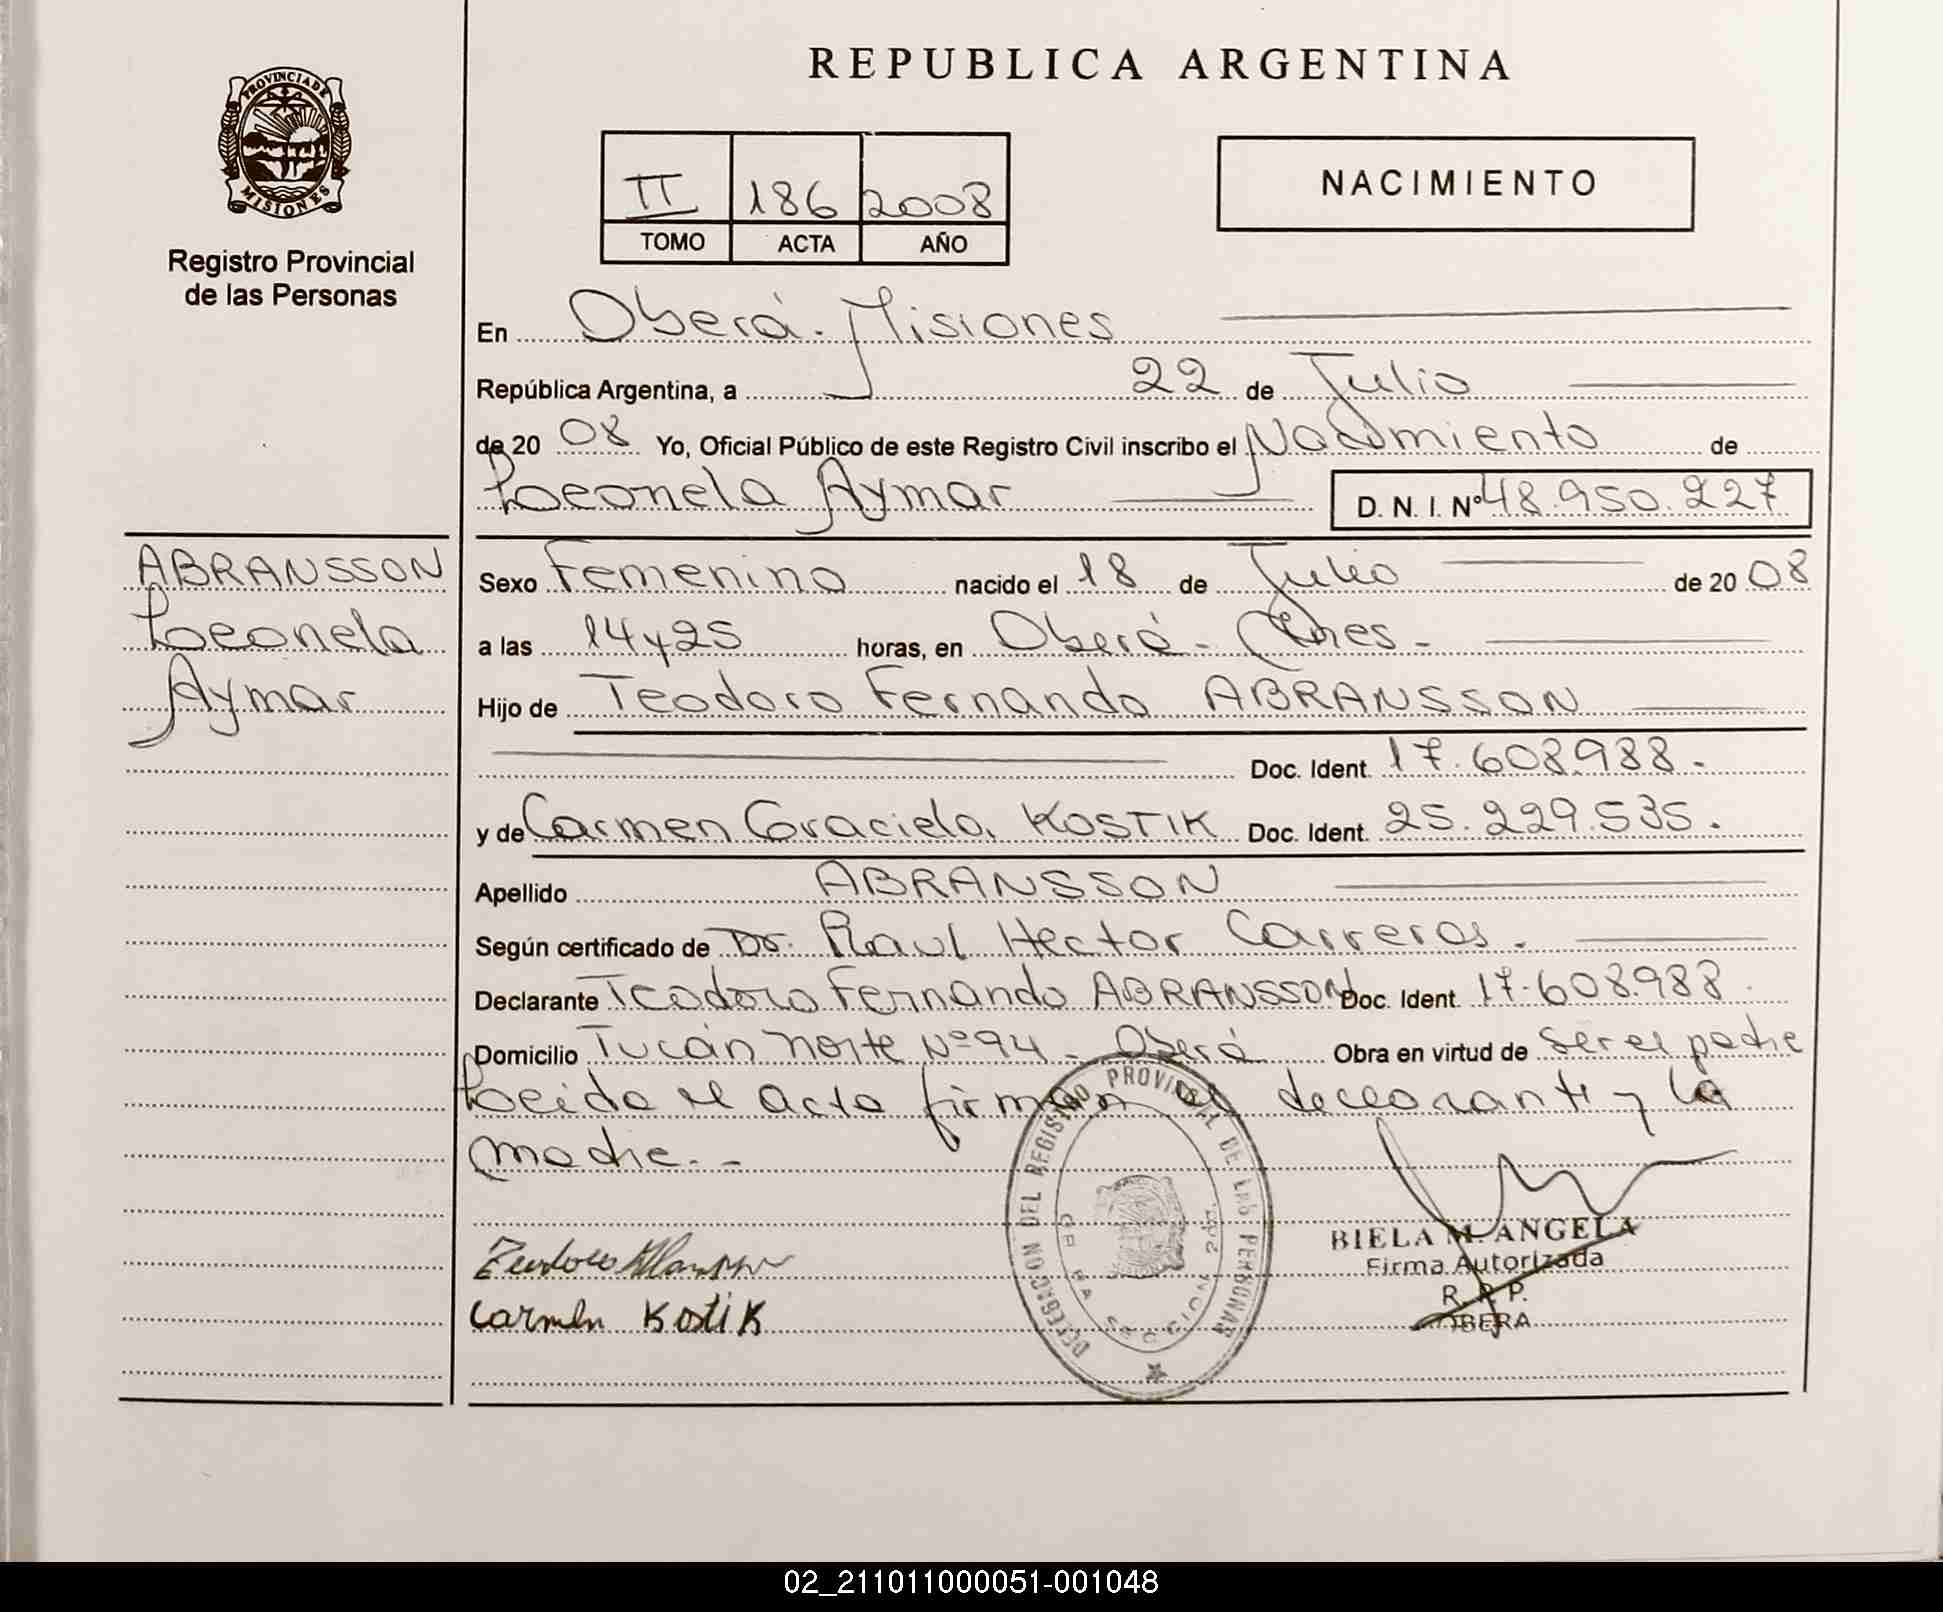 REPUBLICA ARGENTINA
PROVINCIA DE
MISIONES
Registro Provincial
de las Personas
II 186 2008
TOMO ACTA AÑO
NACIMIENTO
En Oberá - Misiones
República Argentina, a 22 de Julio
de 20 08 Yo, Oficial Público de este Registro Civil inscribo el Nacimiento de
Leonela Aymar D. N. I. Nº 48.950.227
ABRANSSON
Leonela
Aymar
Sexo Femenino nacido el 18 de Julio de 20 08
a las 14 y 25 horas, en Oberá - Mnes -
Hijo de Teodoro Fernando ABRANSSON
Doc. Ident. 17.608.988.
y de Carmen Graciela KOSTIK Doc. Ident. 25.229.535.
Apellido ABRANSSON
Según certificado de Dr. Raul Hector Carreros.
Declarante Teodoro Fernando ABRANSSON Doc. Ident. 17.608.988.
Domicilio Tucán Norte Nº 94 - Oberá Obra en virtud de ser el padre
Leida el acta firman el declarante y la
madre. -
DELEGACION DEL REGISTRO PROVINCIAL DE LAS PERSONAS
OBERA SECCION 2da.
Carmen Kostik
BIELA M. ANGELA
Firma Autorizada
R. P. P.
OBERA
02_211011000051-001048